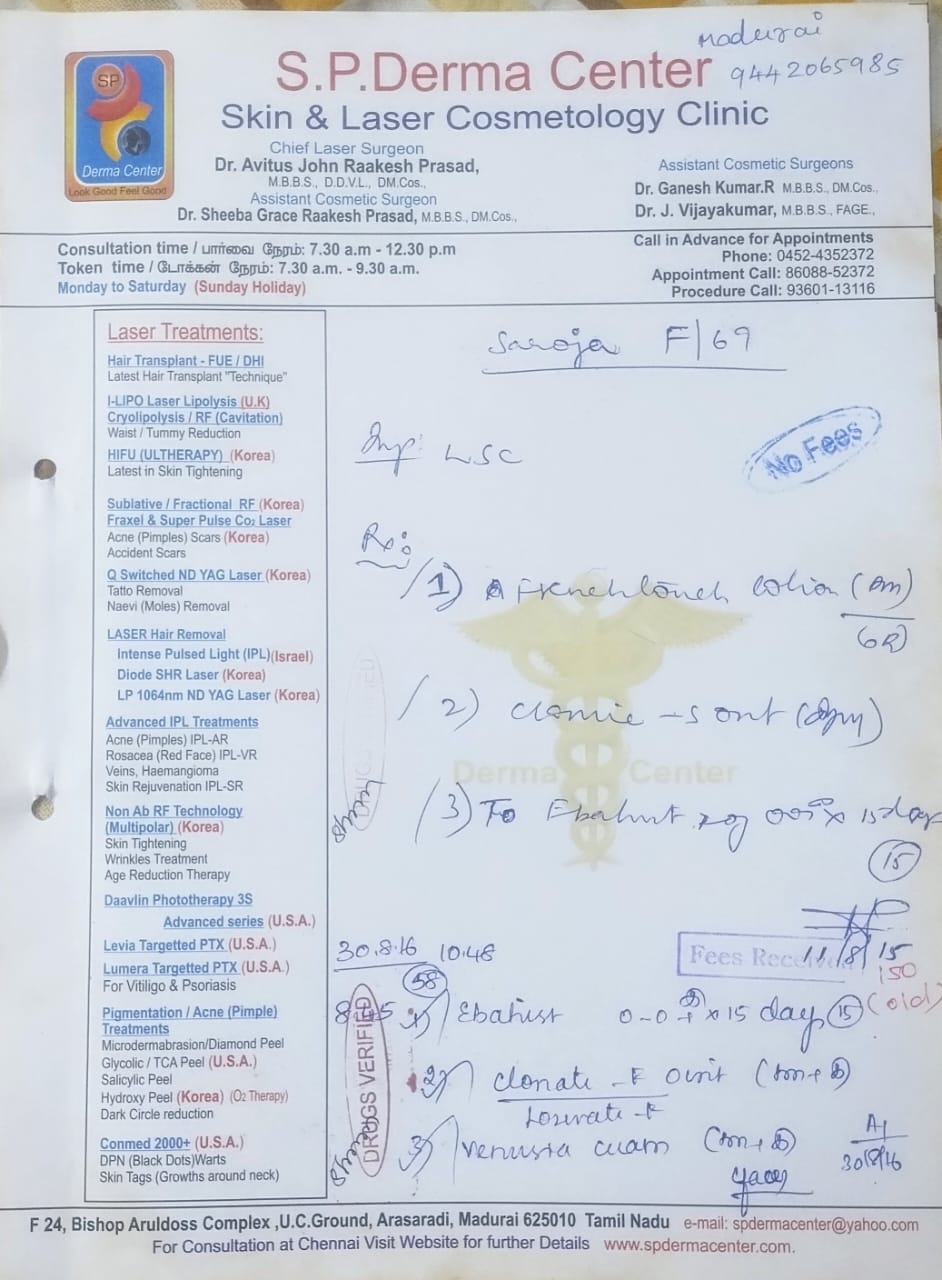 Madurai
9442065985
SP
Derma Center
Look Good Feel Good
S.P.Derma Center
Skin & Laser Cosmetology Clinic
Chief Laser Surgeon
Dr. Avitus John Raakesh Prasad,
M.B.B.S., D.D.V.L., DM.Cos.,
Assistant Cosmetic Surgeon
Dr. Sheeba Grace Raakesh Prasad, M.B.B.S., DM.Cos.,
Assistant Cosmetic Surgeons
Dr. Ganesh Kumar.R M.B.B.S., DM.Cos.,
Dr. J. Vijayakumar, M.B.B.S., FAGE.,
Consultation time / பார்வை நேரம்: 7.30 a.m - 12.30 p.m
Token time / டோக்கன் நேரம்: 7.30 a.m. - 9.30 a.m.
Monday to Saturday (Sunday Holiday)
Call in Advance for Appointments
Phone: 0452-4352372
Appointment Call: 86088-52372
Procedure Call: 93601-13116
Laser Treatments:
Hair Transplant - FUE / DHI
Latest Hair Transplant "Technique"
I-LIPO Laser Lipolysis (U.K)
Cryolipolysis / RF (Cavitation)
Waist / Tummy Reduction
HIFU (ULTHERAPY) (Korea)
Latest in Skin Tightening
Sublative / Fractional RF (Korea)
Fraxel & Super Pulse Co₂ Laser
Acne (Pimples) Scars (Korea)
Accident Scars
Q Switched ND YAG Laser (Korea)
Tatto Removal
Naevi (Moles) Removal
LASER Hair Removal
Intense Pulsed Light (IPL)(Israel)
Diode SHR Laser (Korea)
LP 1064nm ND YAG Laser (Korea)
Advanced IPL Treatments
Acne (Pimples) IPL-AR
Rosacea (Red Face) IPL-VR
Veins, Haemangioma
Skin Rejuvenation IPL-SR
Non Ab RF Technology
(Multipolar) (Korea)
Skin Tightening
Wrinkles Treatment
Age Reduction Therapy
Daavlin Phototherapy 3S
Advanced series (U.S.A.)
Levia Targetted PTX (U.S.A.)
Lumera Targetted PTX (U.S.A.)
For Vitiligo & Psoriasis
Pigmentation / Acne (Pimple)
Treatments
Microdermabrasion/Diamond Peel
Glycolic / TCA Peel (U.S.A.)
Salicylic Peel
Hydroxy Peel (Korea) (O2 Therapy)
Dark Circle reduction
Conmed 2000+ (U.S.A.)
DPN (Black Dots)Warts
Skin Tags (Growths around neck)
Saroja F/69
Imp: LSC
No Fees
Rx:
1) lotion
2) -S oint
3) Ebahist 15 day
15
Derma Center
11/8/15
Fees Received
150
(old)
30.8.16 10.48
58
DRUGS VERIFIED
1) Ebahist 0-0- x 15 day 15
2) Clonate -F oint
Losivate -F
3) Venusia
face
30/8/16
F 24, Bishop Aruldoss Complex ,U.C.Ground, Arasaradi, Madurai 625010 Tamil Nadu e-mail: spdermacenter@yahoo.com
For Consultation at Chennai Visit Website for further Details www.spdermacenter.com.